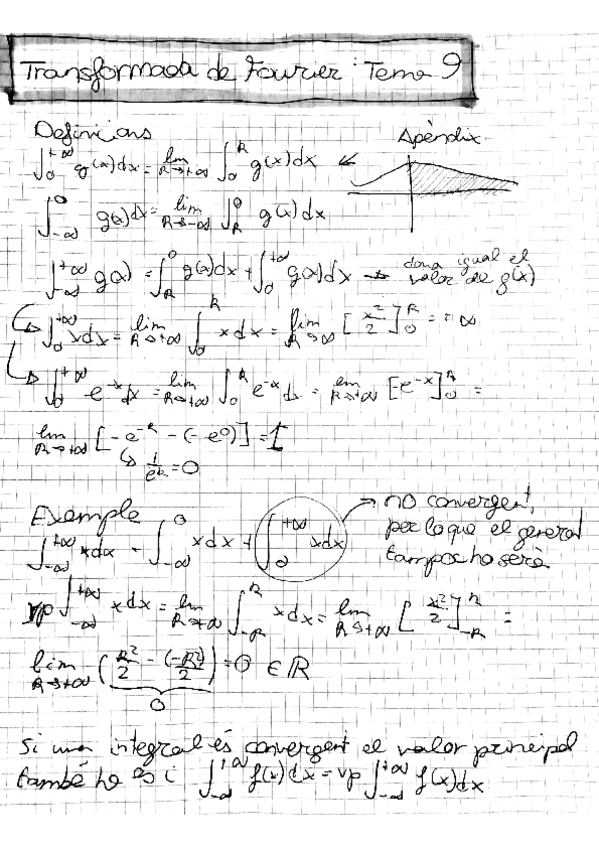 Transformada de Fourier: Tema 9
Definicions
Apèndix
∫_0^{+∞} g(x)dx = lim_{R→+∞} ∫_0^R g(x)dx ←
∫_{-∞}^0 g(x)dx = lim_{R→-∞} ∫_R^0 g(x)dx
∫_{-∞}^{+∞} g(x) = ∫_R^0 g(x)dx + ∫_0^{+∞} g(x)dx → dona igual el
valor de g(x)
∫_0^{+∞} xdx = lim_{R→+∞} ∫_0^R xdx = lim_{R→+∞} [x²/2]_0^R = +∞
∫_0^{+∞} e^{-x}dx = lim_{R→+∞} ∫_0^R e^{-x}dx = lim_{R→+∞} [e^{-x}]_0^R =
lim_{R→+∞} [-e^{-R} - (-e^0)] = 1
↳ 1/e^R = 0
Exemple
∫_{-∞}^{+∞} xdx = ∫_{-∞}^0 xdx + ∫_0^{+∞} xdx → no convergent,
per lo que el general
tampoc ho serà
vp ∫_{-∞}^{+∞} xdx = lim_{R→+∞} ∫_{-R}^R xdx = lim_{R→+∞} [x²/2]_{-R}^R =
lim_{R→+∞} (R²/2 - (-R²)/2) = 0 ∈ ℝ
0
Si una integral és convergent el valor principal
també ho és i ∫_{-∞}^{+∞} f(x)dx = vp ∫_{-∞}^{+∞} f(x)dx